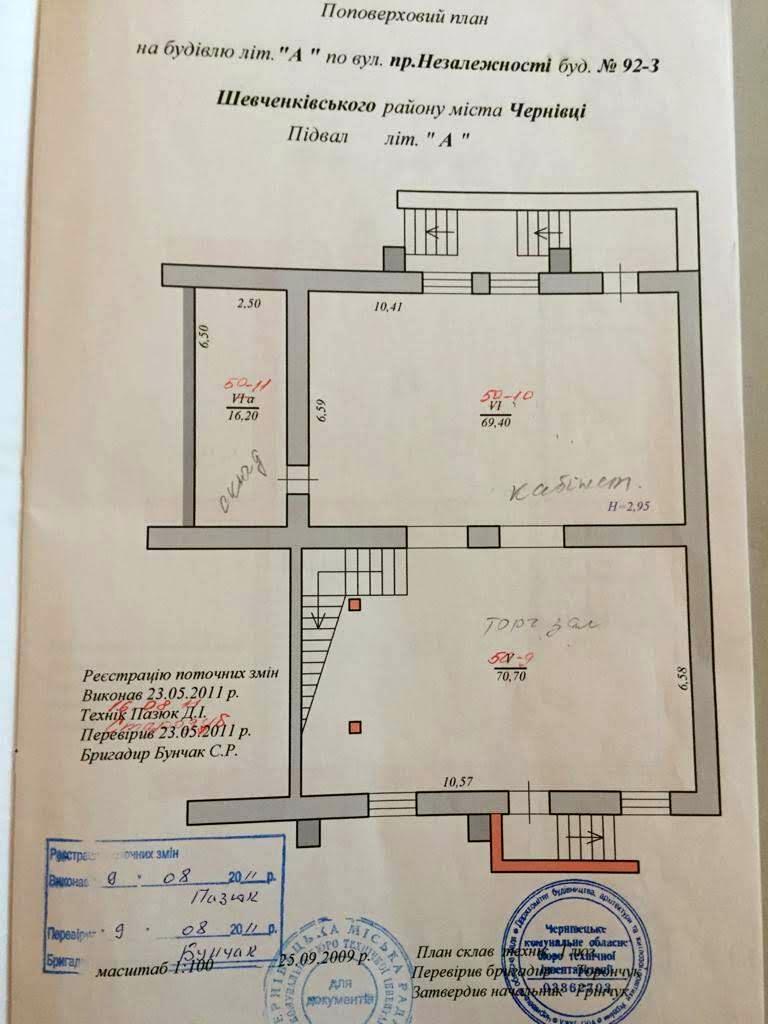 Поповерховий план
на будівлю літ."А " по вул. пр.Незалежності буд. № 92-3
Шевченківського району міста Чернівці
Підвал літ. " А "
2,50
10,41
6,50
6,59
50-11
VIа
16,20
склад
50-10
VI
69,40
кабінет.
Н=2,95
торг зал
50-9
70,70
6,58
10,57
Реєстрацію поточних змін
Виконав 23.05.2011 р.
16 08 11
Технік Пазюк Д.І.
Перевірив 23.05.2011 р.
Бригадир Бунчак С.Р.
поточних змін
Виконав 9 . 08 2011 р.
Пазюк
Перевірив 9 . 08 2011 р.
Бунчак
масштаб 1:100
25.09.2009 р.
для
документів
План склав технік
Перевірив бригадир Торончук
Затвердив начальник Грінчук
Чернівецьке
комунальне обласне
бюро технічної
інвентаризації
03362703